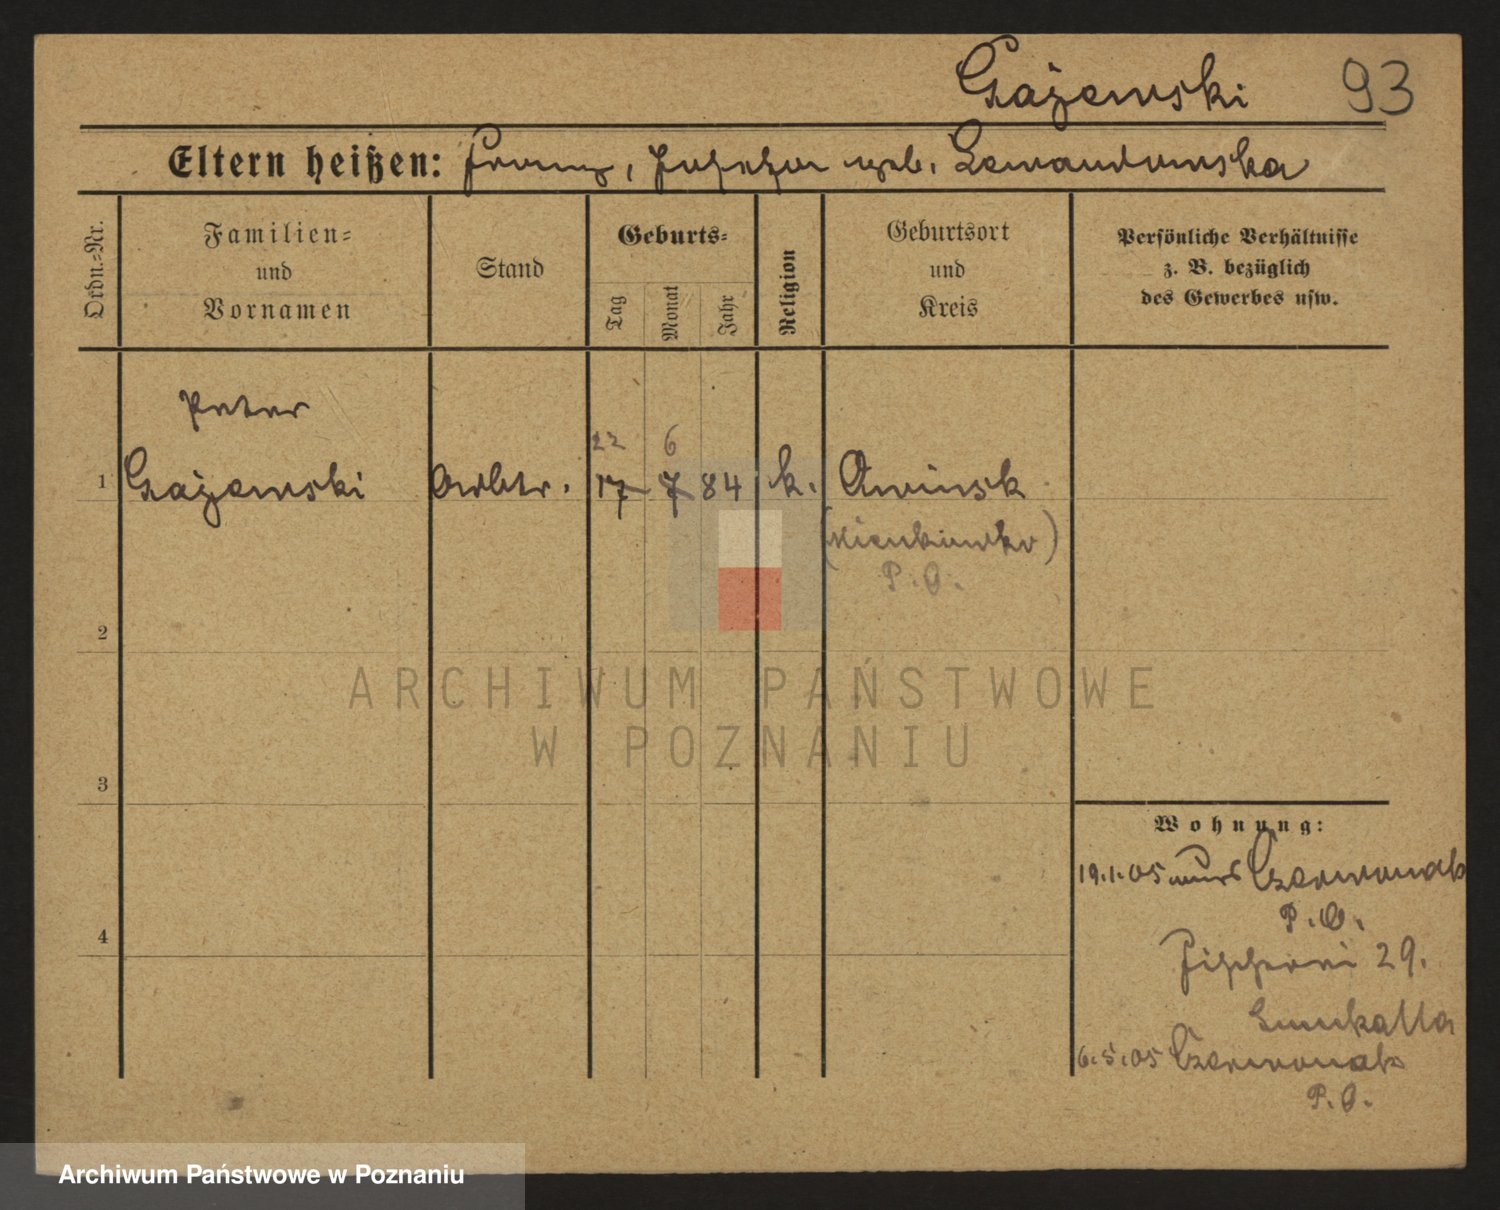 Gażewski 93
Eltern heißen: Franz, Josefa geb. Lewandowska
Ordn.-Nr.
Familien-
und
Vornamen
Stand
Geburts-
Tag
Monat
Jahr
Religion
Geburtsort
und
Kreis
Persönliche Verhältnisse
z. B. bezüglich
des Gewerbes usw.
Peter
22 6
1 Gażewski Arbtr. 17 7 84 k. Owinsk
P. O.
2
ARCHIWUM PAŃSTWOWE
W POZNANIU
3
Wohnung:
19.1.05 nach Czerwonak
P. O.
Fischerei 29.
4
6.5.05 Czerwonak
P. O.
Archiwum Państwowe w Poznaniu